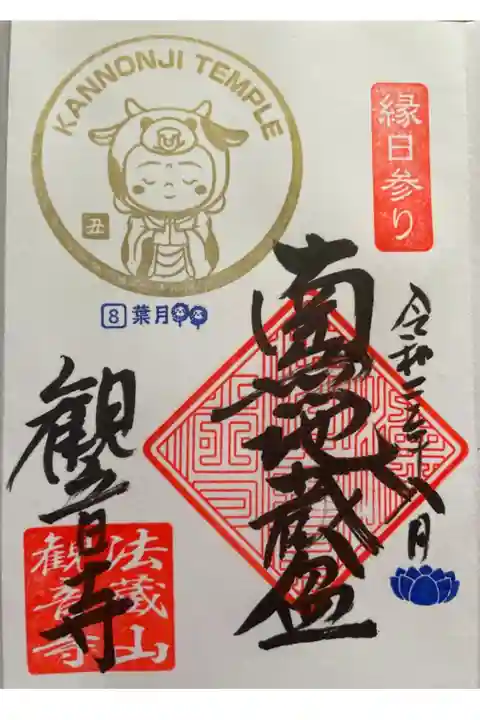 KANNONJI TEMPLE
丑
8 葉月
縁日参り
令和三年八月
南無地蔵盆
觀音寺
法蔵山
観音寺